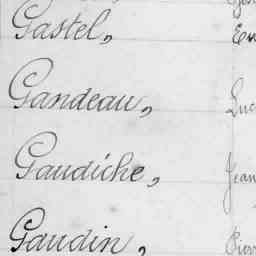 Gastel,
Gandeau, Luc
Gaudiche, Jean
Gaudin,